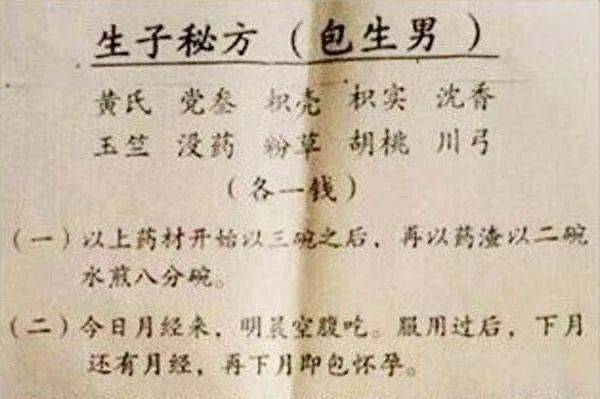 生子秘方（包生男）
黄氏 党叁 枳壳 枳实 沈香
玉竺 没药 粉草 胡桃 川弓
（各一钱）
（一）以上药材开始以三碗之后，再以药渣以二碗
水煎八分碗。
（二）今日月经来，明晨空腹吃。服用过后，下月
还有月经，再下月即包怀孕。